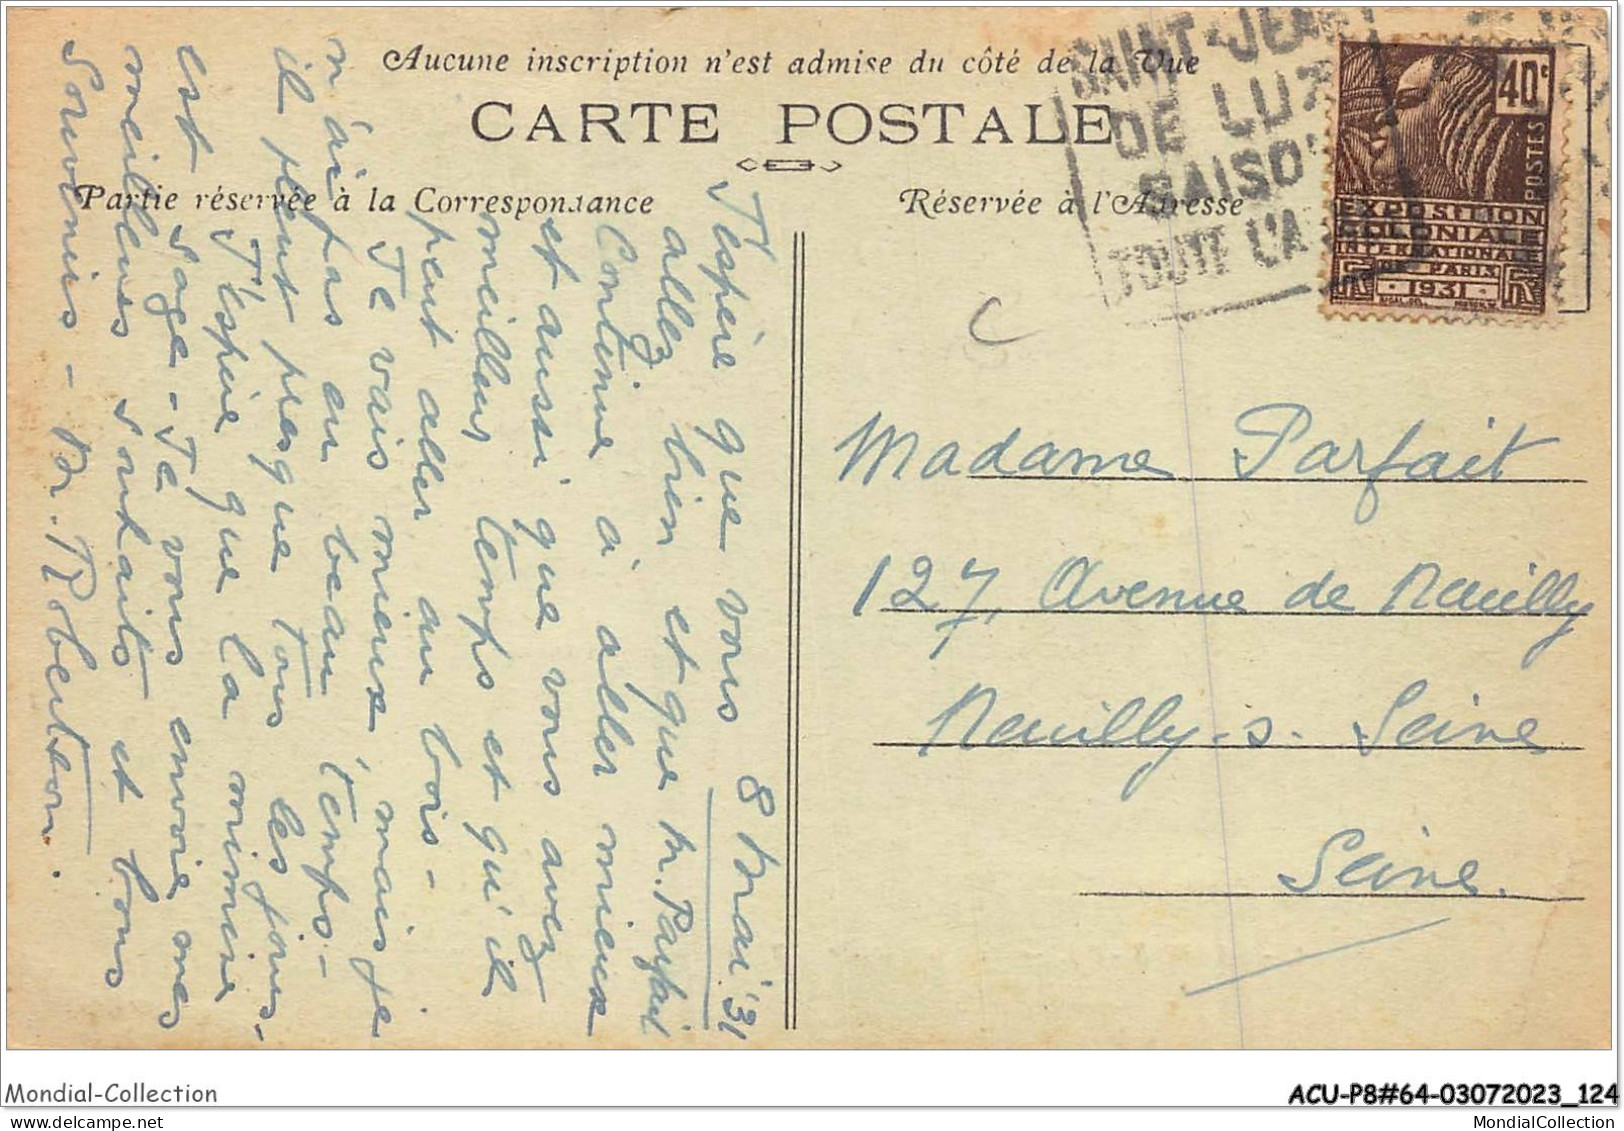 Aucune inscription n'est admise du côté de la Vue
CARTE POSTALE
Partie réservée à la Correspondance
Réservée à l'Adresse
SAINT-JEAN
DE LUZ
SAISON
TOUTE L'A
40c
POSTES
EXPOSITION
COLONIALE
INTERNATIONALE
DE PARIS
1931
8 Mai '31
J'espère que vous
allez bien et que M. Parfait
continue à aller mieux
et aussi que vous avez
meilleur temps et qu'il
peut aller au bois -
Je vais mieux, mais je
n'ai pas eu beau temps -
il pleut presque tous les jours -
J'espère que la mimine
est sage - Je vous envoie mes
meilleures souhaits et bons
souvenirs - M. Robertson.
Madame Parfait
127, Avenue de Neuilly
Neuilly-s-Seine
Seine.
Mondial-Collection
ACU-P8#64-03072023_124
MondialCollection
www.delcampe.net